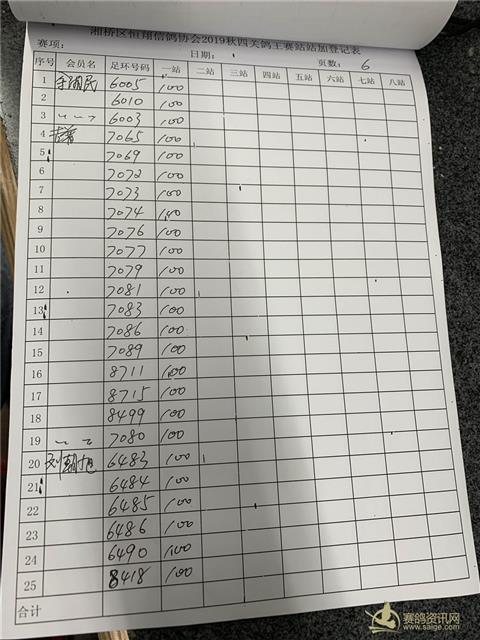 湘桥区恒翔信鸽协会2019秋四关鸽王赛站站加登记表
赛项: 日期: 页数: 6
序号 会员名 足环号码 一站 二站 三站 四站 五站 六站 七站 八站
1 6005 100
2 6010 100
3 〃 〃 6003 100
4 7065 100
5 7069 100
6 7072 100
7 7073 100
8 7074 100
9 7076 100
10 7077 100
11 7079 100
12 7081 100
13 7083 100
14 7086 100
15 7089 100
16 8711 100
17 8715 100
18 8499 100
19 〃 〃 7080 100
20 刘朝旭 6483 100
21 6484 100
22 6485 100
23 6486 100
24 6490 100
25 8418 100
合计
赛鸽资讯网
www.saige.com